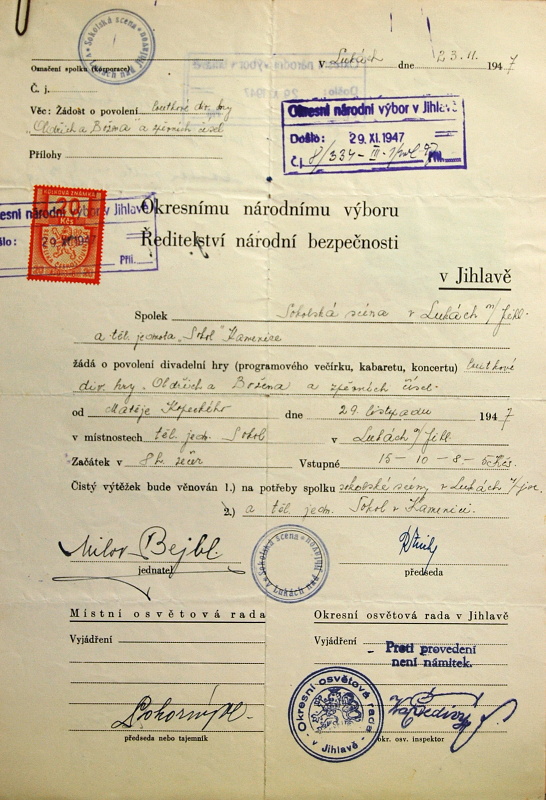 Sokolská scena v Lukách nad Jihlavou
V Lukách dne 23. 11. 1947
Označení spolku (korporace)
Č. j.
Věc: Žádost o povolení loutkové div. hry
"Oldřich a Božena a zpěvních čísel
Přílohy
Okresní národní výbor v Jihlavě
Došlo: 29. XI. 1947
Č.
KOLKOVÁ ZNÁMKA
20
Kčs
Okresní národní výbor v Jihlavě
Došlo: 29. XI. 1947
Příl.
Okresnímu národnímu výboru
Ředitelství národní bezpečnosti
v Jihlavě
Spolek Sokolská scéna v Lukách n/Jihl.
a těl. jednota "Sokol" Kamenice
žádá o povolení divadelní hry (programového večírku, kabaretu, koncertu) loutkové
div. hry "Oldřich a Božena a zpěvních čísel
od Matěje Kopeckého dne 29. listopadu 1947
v místnostech těl. jedn. Sokol v Lukách n/Jihl.
Začátek v 8 h. večer Vstupné 15-10-8-5 Kčs.
Čistý výtěžek bude věnován 1.) na potřeby spolku sokolské scény v Lukách
2.) a těl. jedn. Sokol v Kamenici.
Milov Bejbl
jednatel
předseda
Sokolská scena v Lukách nad Jihlavou
Místní osvětová rada
Okresní osvětová rada v Jihlavě
Vyjádření:
Vyjádření:
Proti provedení
není námitek.
Okresní osvětová rada
v Jihlavě
předseda nebo tajemník
okr. osv. inspektor